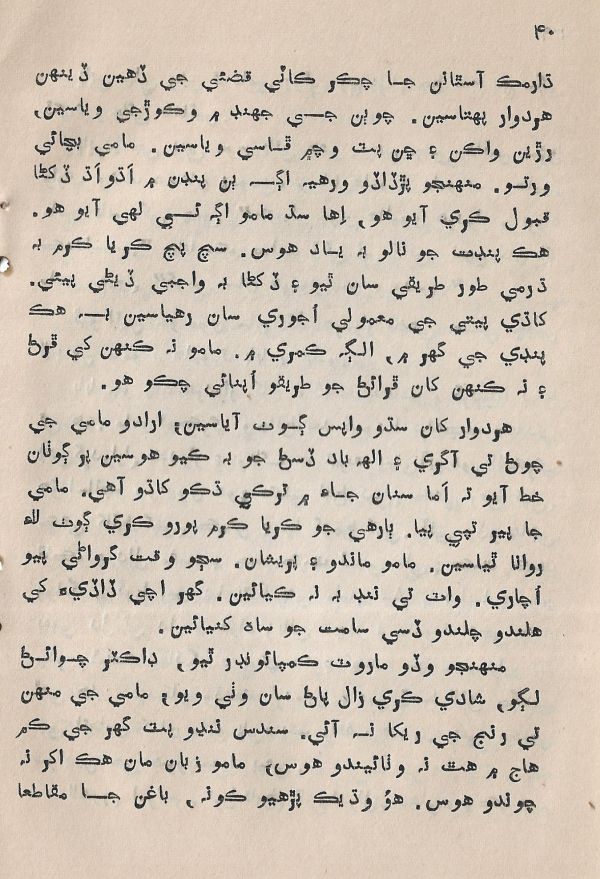 ۴۰
ڌارمڪ آسٿانن جا چڪر ڪاٽي قضئي جي ڏهين ڏينهن
هردوار پهتاسين. چوٻن جي جهنڊ ۾ وڪوڙجي وياسين،
رڙين واڪن ۽ ڇن پٽ وچ۾ ڦاسي وياسين. مامي بچائي
ورتو. منهنجو پڙڏاڏو ورهيہ اڳ ٻن پنڊن ۾ اَڌواَڌ ڏکڻا
قبول ڪري آيو هو، اِها سڌ مامو اڳہ ئي لهي آيو هو.
هڪ پنڊت جو نالو بہ ياد هوس. سڄ پڄ ڪريا ڪرم بہ
ڌرمي طور طريقي سان ٿيو ۽ ڏکڻا بہ واجبي ڏيڻي پيئي.
کاڌي پيتي جي معمولي اُجوري سان رهياسين بہ هڪ
پنڊي جي گهر ۾، الڳہ ڪمري ۾. مامو نہ ڪنهن کي ڦرڻ
۽ نہ ڪنهن کان ڦرائڻ جو طريقو اَپنائي چڪو هو.
هردوار کان سڌو واپس ڳوٺ آياسين؛ ارادو مامي جي
چوڻ تي آگري ۽ الهہ باد ڏسڻ جو بہ ڪيو هوسين پر ڳوٺان
خط آيو تہ اَما سنان جاءِ ۾ ترڪي ڌڪو کاڌو آهي. مامي
جا پير تپي پيا. ٻارهي جو ڪريا ڪرم پورو ڪري ڳوٺ لاءِ
روانا ٿياسين. مامو ماندو ۽ پريشان. سڄو وقت گرواڻي پيو
اُچاري. واٽ تي ننڊ بہ نہ ڪيائين. گهر اچي ڏاڏيءَ کي
هلندو چلندو ڏسي سامت جو ساہ کنيائين.
منهنجو وڏو ماروٽ ڪمپائونڊر ٿيو، ڊاڪٽر چوائڻ
لڳو، شادي ڪري زال پاڻ سان وٺي ويو؛ مامي جي منهن
تي رنج جي ريکا نہ آئي. سندس ننڍو پٽ گهر جي ڪم
ڪاج ۾ هٿ نہ ونڊائيندو هوس؛ مامو زبان مان هڪ اکر نہ
چوندو هوس. هوُ وڌيڪ پڙهيو ڪونہ، باغن جا مقاطعا